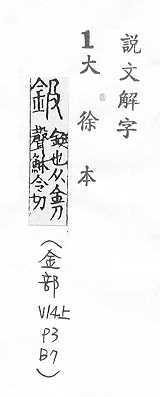 說文解字
1大徐本
鈒
鋋也从金及
聲穌合切
(金部
V14上
P3
B7)